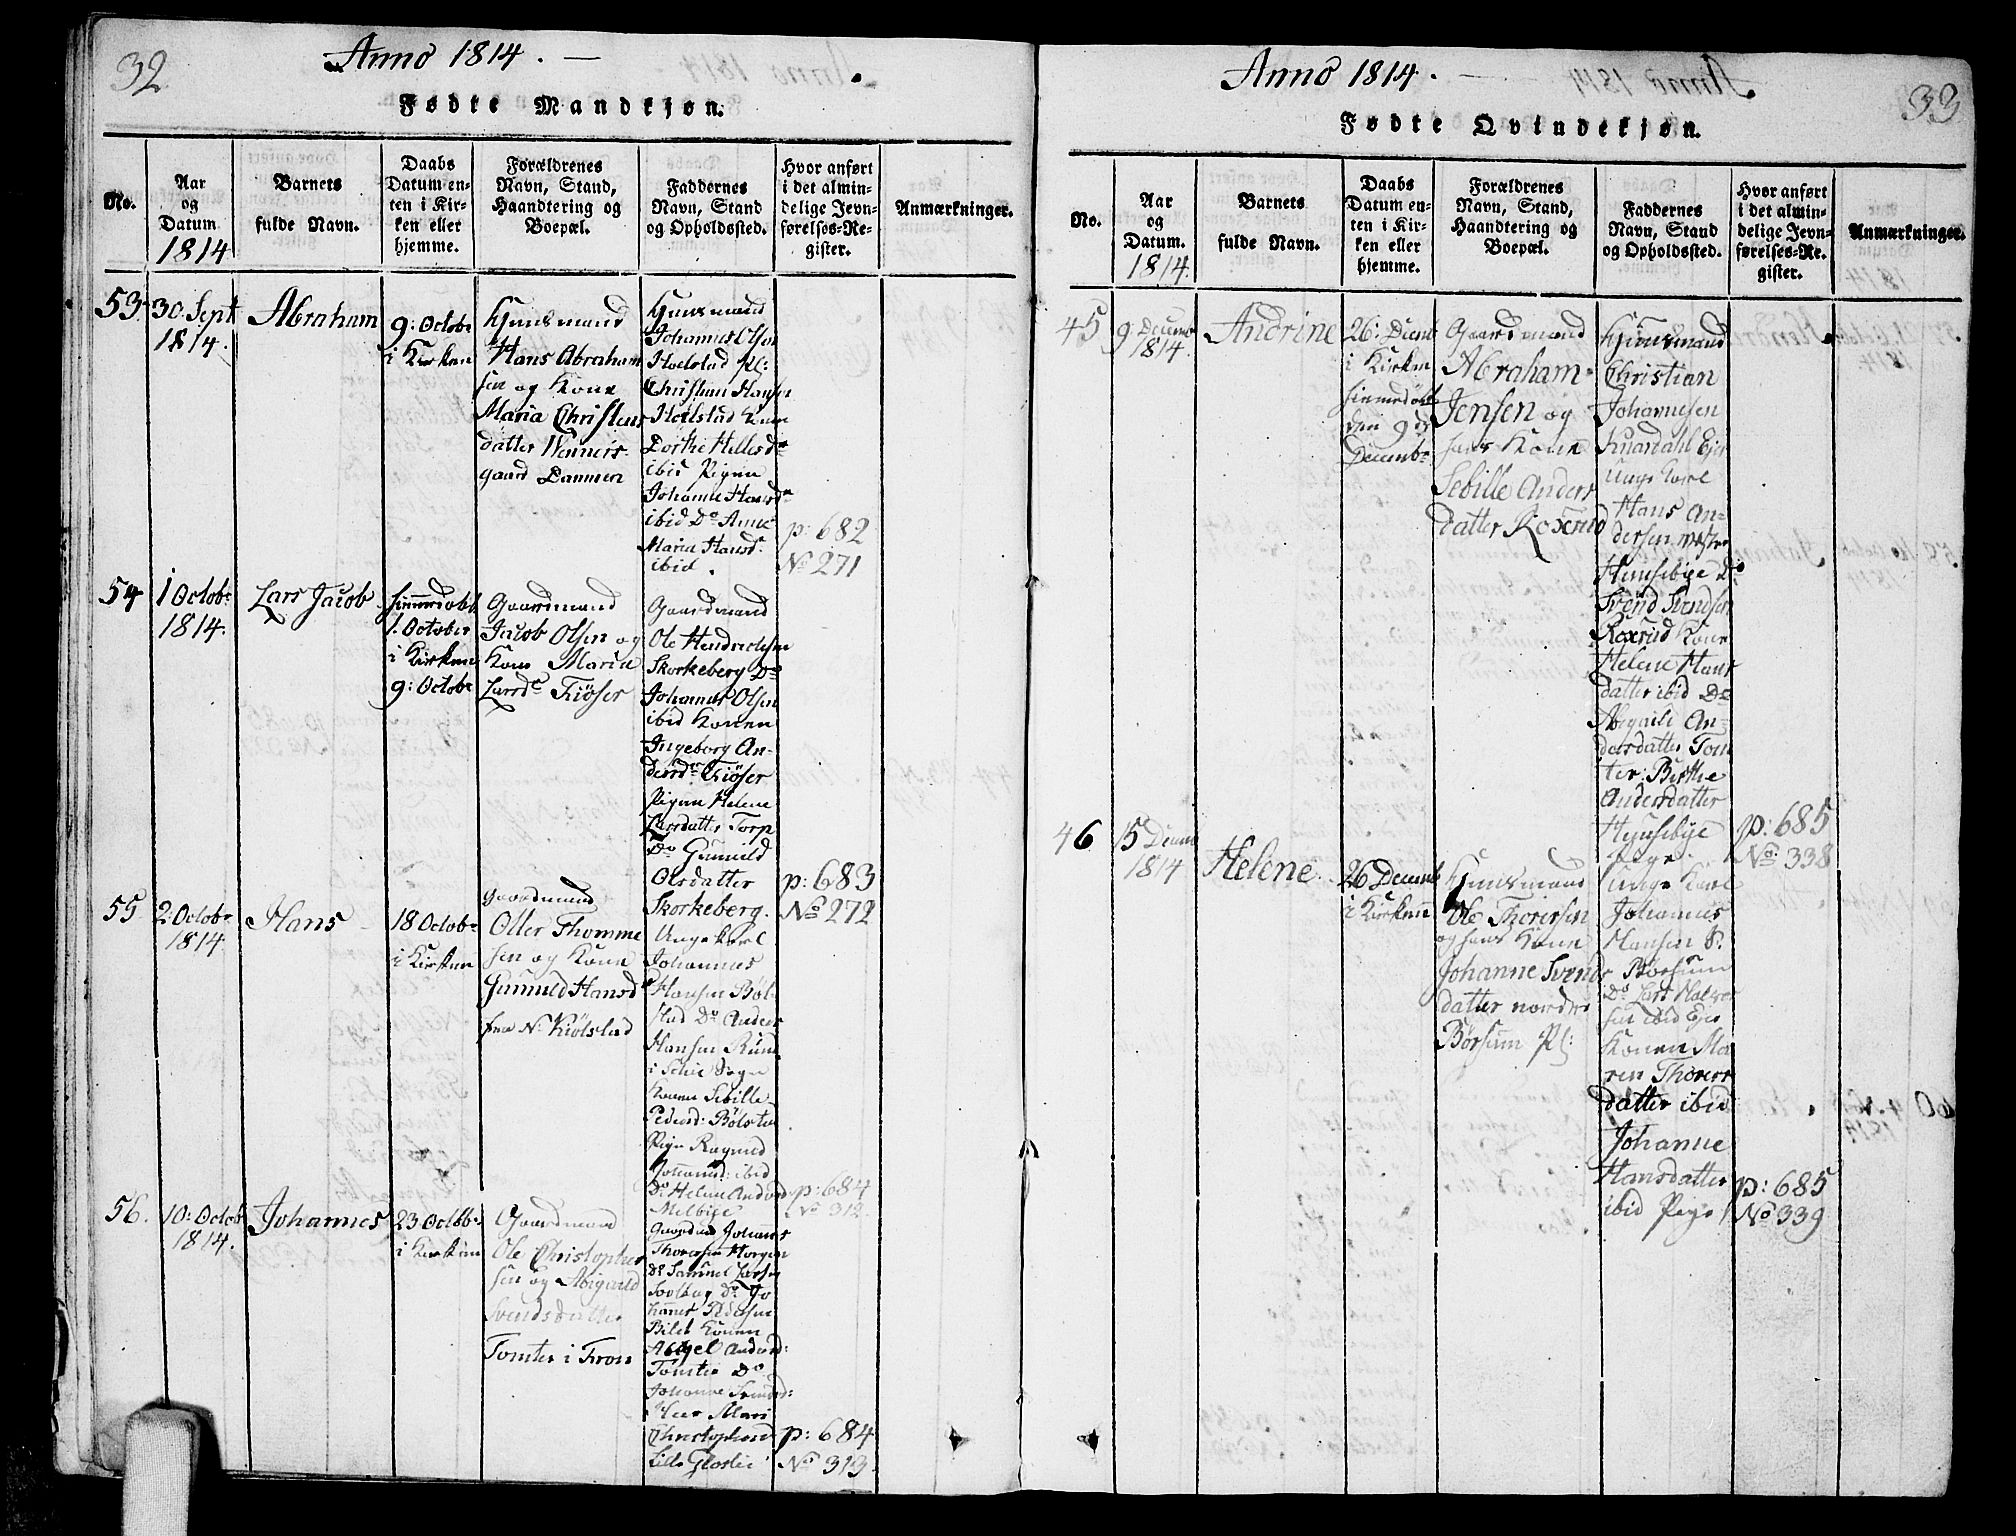 32
Anno 1814. —
Fødte Mandkjøn.
No.
Aar
og
Datum
1814
Barnets
fulde Navn.
Daabs
Datum en-
ten i Kir-
ken eller
hjemme.
Forældrenes
Navn, Stand,
Haandtering og
Boepæl.
Faddernes
Navn, Stand
og Opholdssted.
Hvor anført
i det almin-
delige Jevn-
førelses-Re-
gister.
Anmærkninger.
53.
30. Sept
1814.
Abraham
9: Octobr
i Kirken
Huusmand
Hans Abraham
sen og Kone
Maria Christens
datter Wenners
gaard Dammen
Huusmand
Johannes Olsen
Christian Hansen
Dorthe
ibid Pigen
Johanne Hansdr
ibid Do Anne
Maria Hansdr
ibid.
p: 682
No 271
54
1 Octobr
1814.
Lars Jacob
hiemmedøbt
1. October
i Kirken
9: Octobr
Gaardmand
Jacob Olsen og
Kone Maria
Larsdr Fiøser
Gaardmand
Ole Hendrichsen
Skorkeberg Do
Johannes Olsen
ibid Konen
Ingeborg An-
dersdr Fiøser
Pigen Helene
Larsdatter Torp
Do Gunnild
Olsdatter
Skorkeberg.
p: 683
No 272
55
2: Octobr
1814.
Hans
18 Octobr
i Kirken
Gaardmand
Oller Thomme
sen og Kone
Gunnild Hansdr
fra N. Kiølstad
Ungekarl
Johannes
Hansen Bøl-
stad Do Anders
Hansen
i Schie Sogn
Konen Sibille
Pedersd: Bølstad
Pige Ragnild
Johannesd: ibid
Do Helene Andersd
Melbÿe
p: 684
No 312
56.
10: Octob
1814.
Johannes
23 Octobr
i Kirken
Gaardmand
Ole Christopher
sen og Abigaeld
Svendsdatter
Tomter i Fron
Gaardmd Johannes
Thoresen Horgen
Do Samuel Larsen
Do Jo
hannes Pedersen
Bilet Konen
Andersd:
Tomter Do
Johanne Svendsd:
Mari
Christophersd
Lille Glosli
p: 684
No 313.
33
Anno 1814. —
Fødte Qvindekjøn.
No.
Aar
og
Datum.
1814.
Barnets
fulde Navn.
Daabs
Datum en-
ten i Kir-
ken eller
hjemme.
Forældrenes
Navn, Stand,
Haandtering og
Boepæl.
Faddernes
Navn, Stand
og Opholdssted.
Hvor anført
i det almin-
delige Jevn-
førelses-Re-
gister.
Anmærkninger.
45
9. Decembr
1814.
Andrine
26: Decemb
i Kirken
hiemmedøbt
den 9 ds
Decembr
Gaardmand
Abraham
Jensen og
hans Kone
Sebille Anders
datter Roxrud
Huusmand
Christian
Johannesen
Ejer
Unge Karl
Hans An-
dersen Wæstre
Huusebÿe Do
Svend Svendsen
Roxrud Kone
Helene Hans
datter ibid Do
Abigaili An-
dersdatter Tom
ter: Birthe
Andersdatter
Huusebÿe
Pige.
p: 685
No: 338
46
15 Decemb
1814
Helene
26 Decemb
i Kirken
Huusmand
Ole Thoresen
og hans Kone
Johanne Svends
datter nordre
Børsum Pl:
Unge Karl
Johannes
Hansen S.
Børsum
Do Lars Halvor
sen ibid Ejer
Konen Ma
ren Thorers
datter ibid
Johanne
Hansdatter
ibid Pige
p: 685
No 339